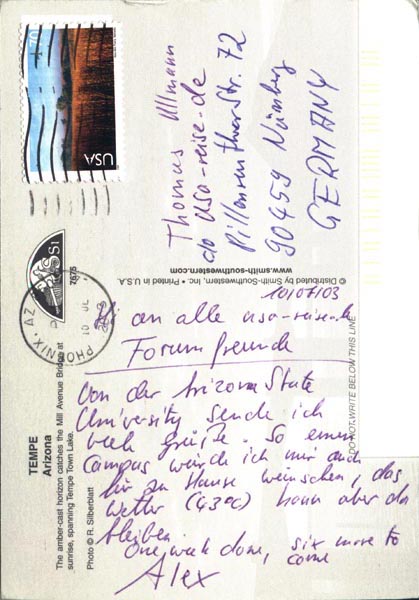 TEMPE
Arizona
The amber-cast horizon catches the Mill Avenue Bridge at
sunrise, spanning Tempe Town Lake.
Photo © R. Silberblatt
70
USA
PHOENIX, AZ
10 JUL
7676
© Distributed by Smith-Southwestern, Inc. • Printed in U.S.A.
www.smith-southwestern.com
DO NOT WRITE BELOW THIS LINE
10/07/03
Hi an alle usa-reise.de
Forumfreunde
Von der Arizona State
University sende ich
viele Grüße. So einen
Campus würde ich mir auch
für zu Hause wünschen, das
Wetter (43°C) kann aber da
bleiben
One week done, six more to
come
Alex
Thomas Ullmann
c/o usa-reise.de
Pillenreuther Str. 72
90459 Nürnberg
GERMANY